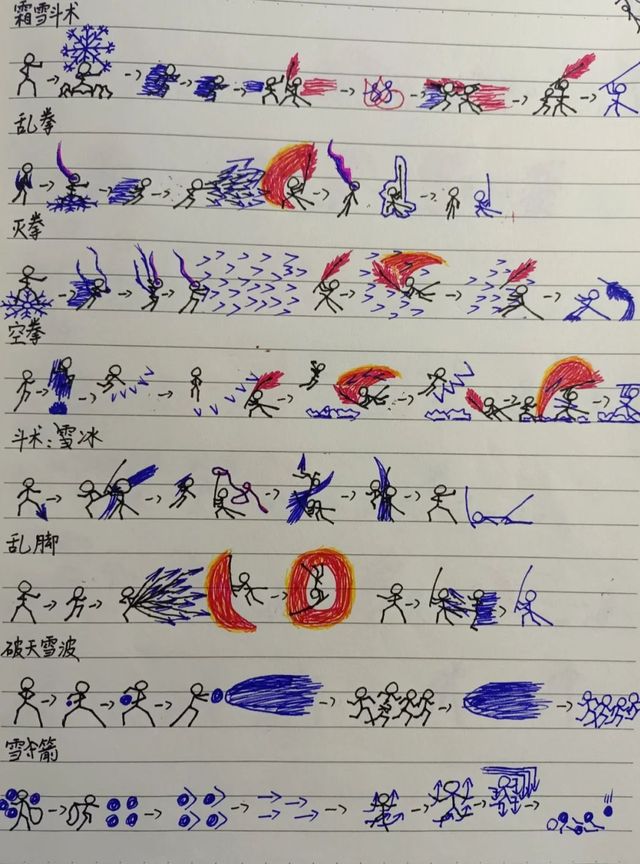 霜雪斗术
乱拳
灭拳
空拳
斗术：雪冰
乱脚
破天雪波
雪夺箭